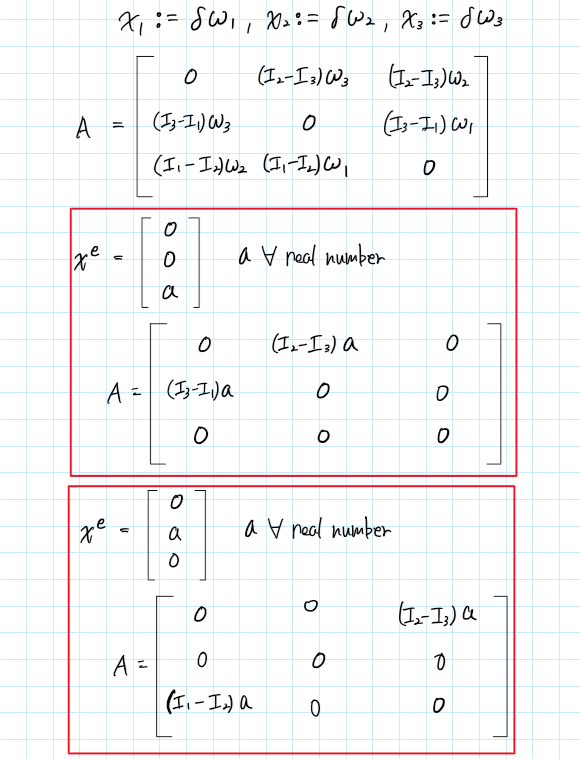 x₁ := δω₁, x₂ := δω₂, x₃ := δω₃
0 (I₂-I₃)ω₃ (I₂-I₃)ω₂
A = (I₃-I₁)ω₃ 0 (I₃-I₁)ω₁
(I₁-I₂)ω₂ (I₁-I₂)ω₁ 0
0
xᵉ = 0 a ∀ real number
a
0 (I₂-I₃)a 0
A = (I₃-I₁)a 0 0
0 0 0
0
xᵉ = a a ∀ real number
0
0 0 (I₂-I₃)a
A = 0 0 0
(I₁-I₂)a 0 0